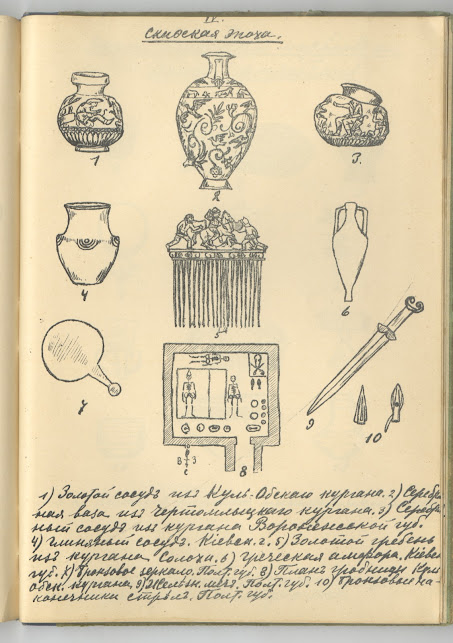 II.
Скиѳская эпоха.
1
2
3.
4
5
6
7
8
9
10
В
С
1) Золотой сосудъ изъ Куль-Обскаго кургана. 2) Серебря-
ная ваза изъ Чертомлыцкаго кургана. 3) Серебря-
ный сосудъ из кургана Воронежской губ.
4) глиняный сосудъ. Кіевск. г. 5) Золотой гребень
изъ кургана Солоха. 6) Греческая амфора. Кіевск.
губ. 7) Бронзовое зеркало. Полт. губ. 8) Планъ гробницы Куль
обск. кургана. 9) Желѣзн. мечъ. Полт. губ. 10) Бронзовые на-
конечники стрѣлъ. Полт. губ.